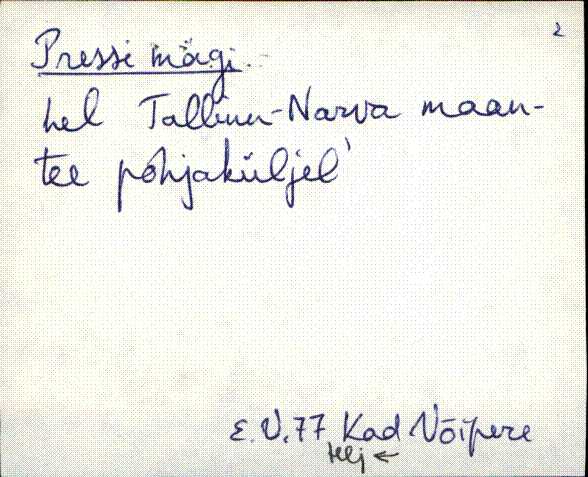 2
Pressi mägi.
hel Tallinn-Narva maan-
tee põhjaküljel'
E.V. 77 Kad Võipere
Hlj ←